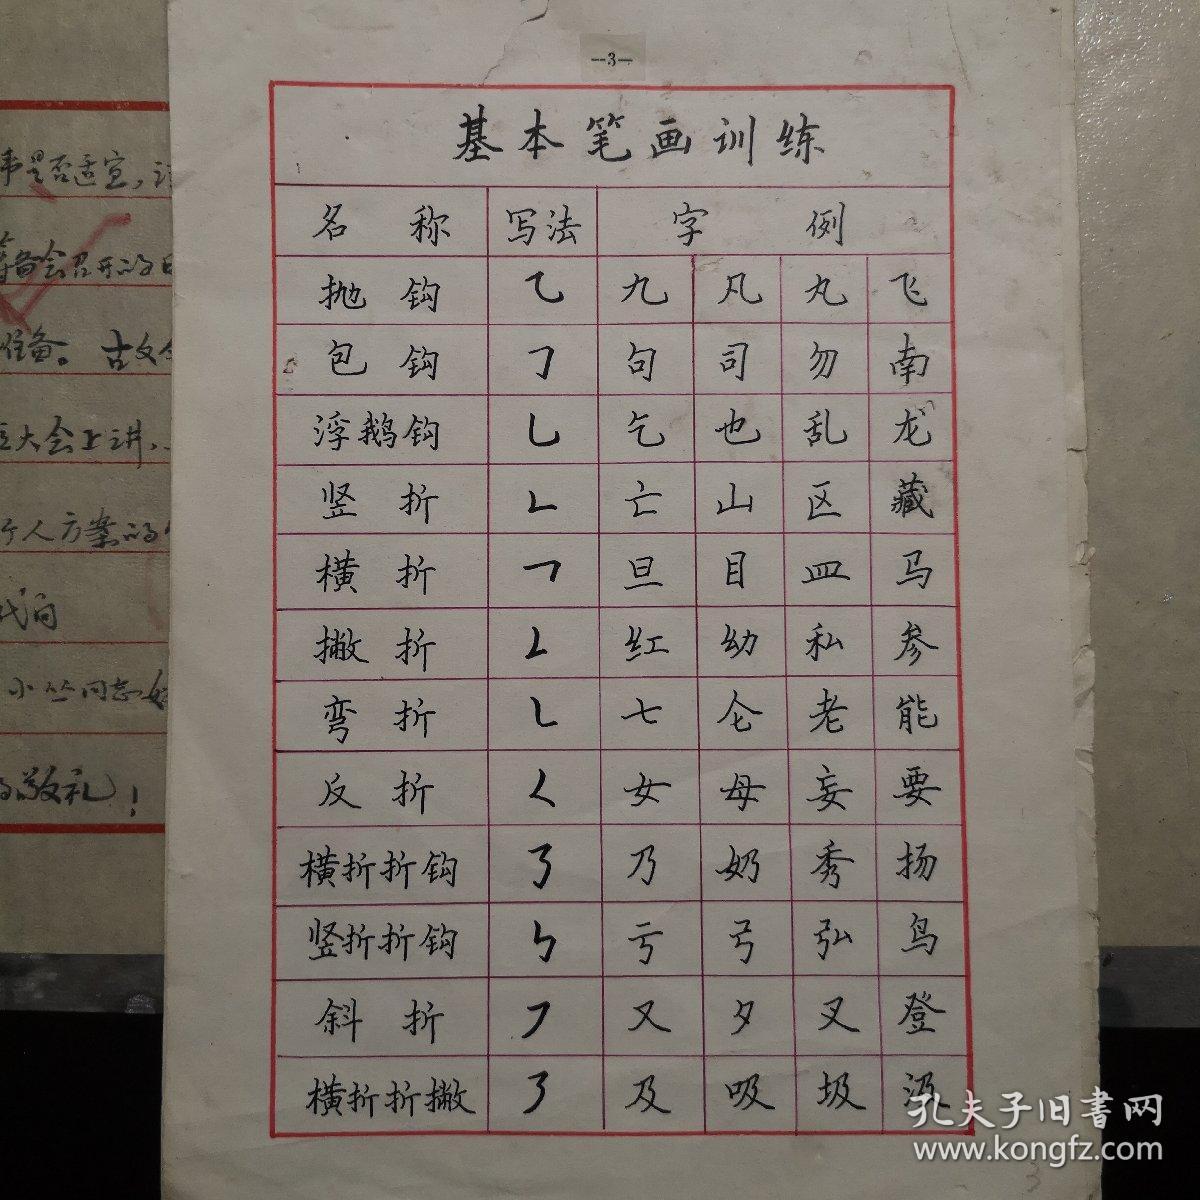 —3—
基本笔画训练
名称 写法 字例
抛钩 ⺄ 九 凡 丸 飞
包钩 𠃌 句 司 勿 南
浮鹅钩 乚 乞 也 乱 龙
竖折 𠃊 亡 山 区 藏
横折 𠃍 旦 目 皿 马
撇折 𠃋 红 幼 私 参
弯折 ㇄ 七 仑 老 能
反折 𡿨 女 母 妄 要
横折折钩 ㇡ 乃 奶 秀 扬
竖折折钩 ㇉ 亏 弓 弘 鸟
斜折 ㇇ 又 夕 叉 登
横折折撇 ㇋ 及 吸 圾 汲
是否适宜,
备会召开的日
准备。古文
大会上讲、
个人方案的
代向
小丛同志好
敬礼!
孔夫子旧書网
www.kongfz.com
3